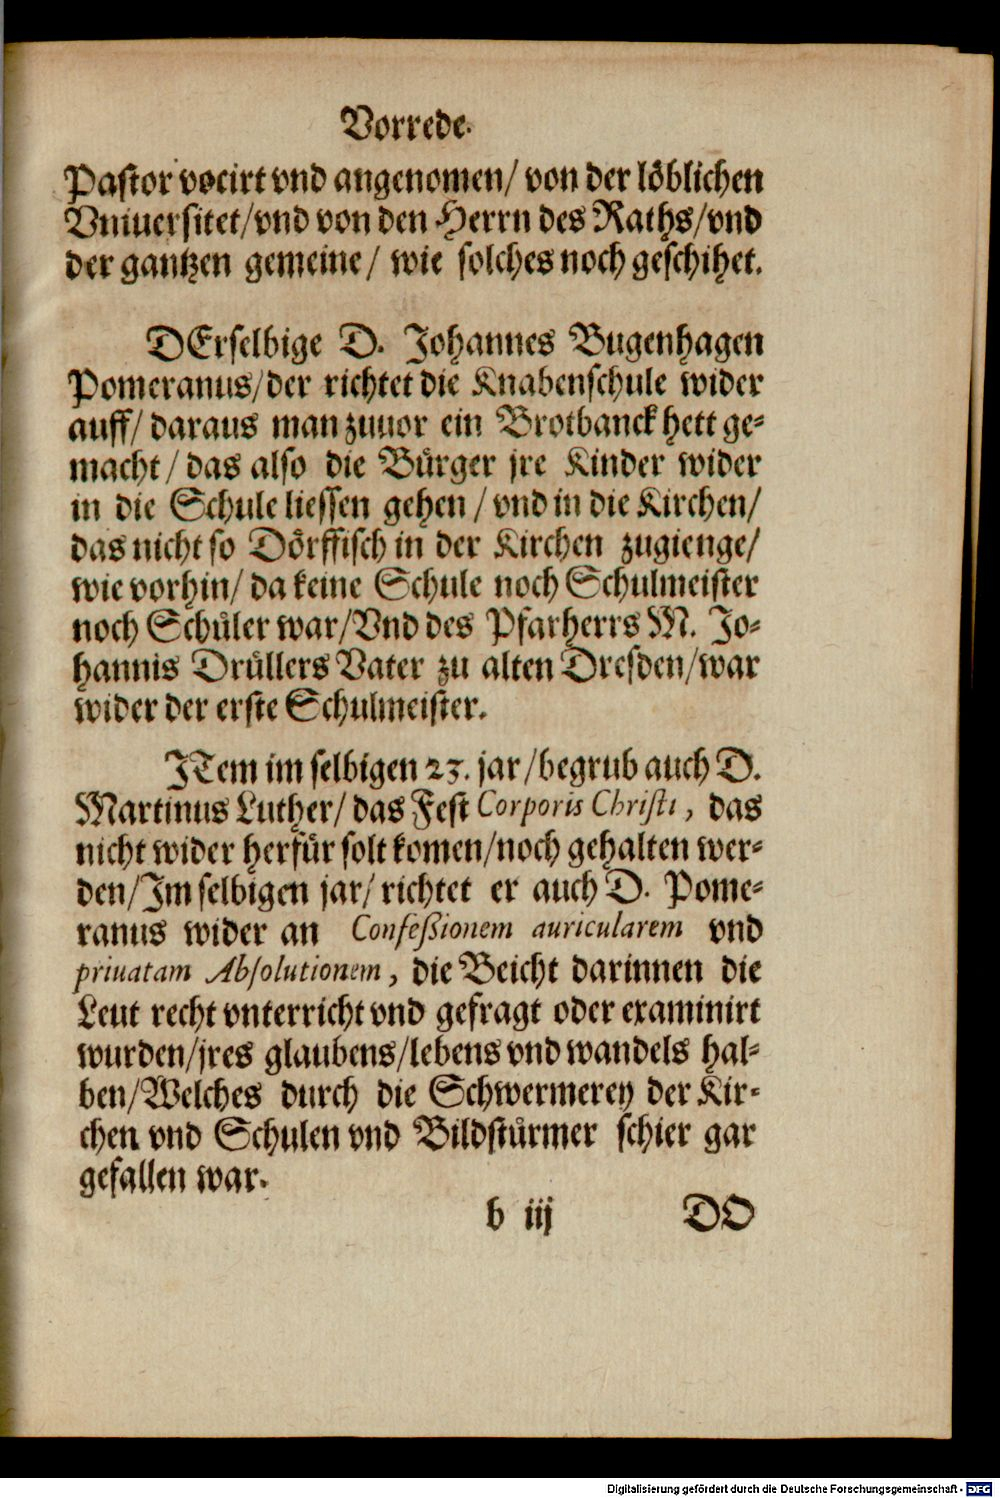 Vorrede.
Pastor vocirt vnd angenomen/ von der löblichen
Vniuersitet/vnd von den Herrn des Raths/vnd
der gantzen gemeine/ wie solches noch geschihet.
DErselbige D. Johannes Bugenhagen
Pomeranus/der richtet die Knabenschule wider
auff/ daraus man zuuor ein Brotbanck hett ge-
macht/das also die Bürger jre Kinder wider
in die Schule liessen gehen/vnd in die Kirchen/
das nicht so Dörffisch in der Kirchen zugienge/
wie vorhin/ da keine Schule noch Schulmeister
noch Schüler war/Vnd des Pfarherrs M. Jo-
hannis Drüllers Vater zu alten Dresden/war
wider der erste Schulmeister.
JTem im selbigen 23. jar/begrub auch D.
Martinus Luther/ das Fest Corporis Christi, das
nicht wider herfür solt komen/noch gehalten wer-
den/Im selbigen jar/richtet er auch D. Pome-
ranus wider an Confeßionem auricularem vnd
priuatam Absolutionem, die Beicht darinnen die
Leut recht vnterricht vnd gefragt oder examinirt
wurden/jres glaubens/lebens vnd wandels hal-
ben/Welches durch die Schwermerey der Kir-
chen vnd Schulen vnd Bildstürmer schier gar
gefallen war.
b iij DO
Digitalisierung gefördert durch die Deutsche Forschungsgemeinschaft - DFG